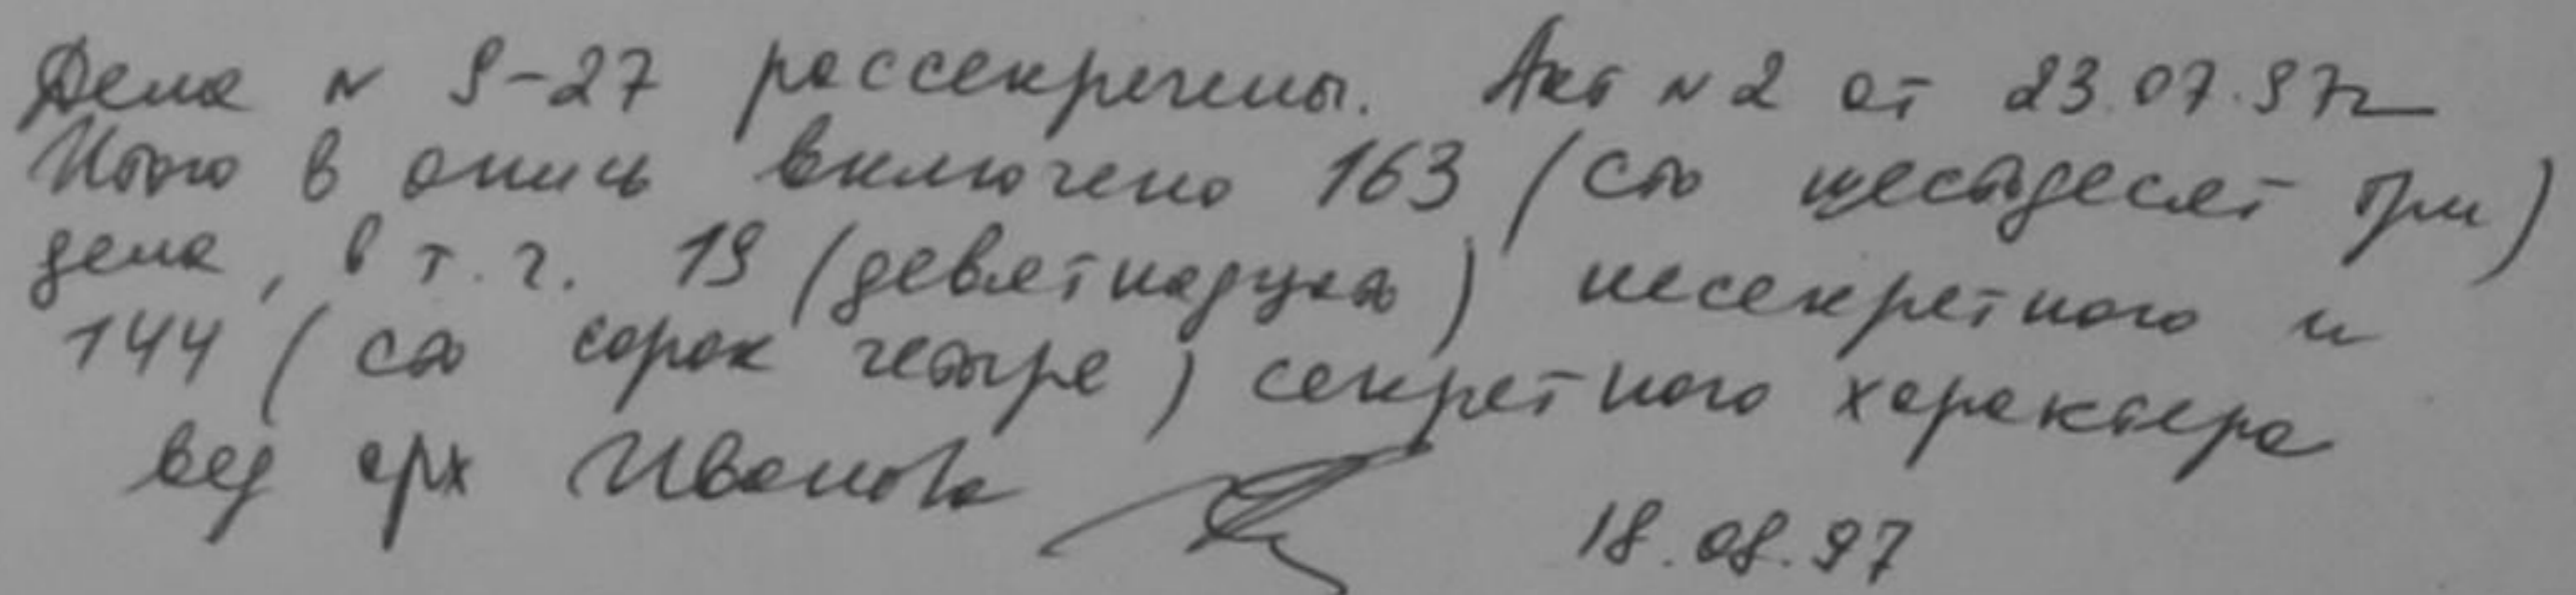 Дела N 9-27 рассекречены. Акт N 2 от 23.07.97г
Итого в опись включено 163 (сто шестьдесят три)
дела, в т.ч. 19 (девятнадцать) несекретного и
144 (сто сорок четыре) секретного характера
вед арх Иванова
18.08.97